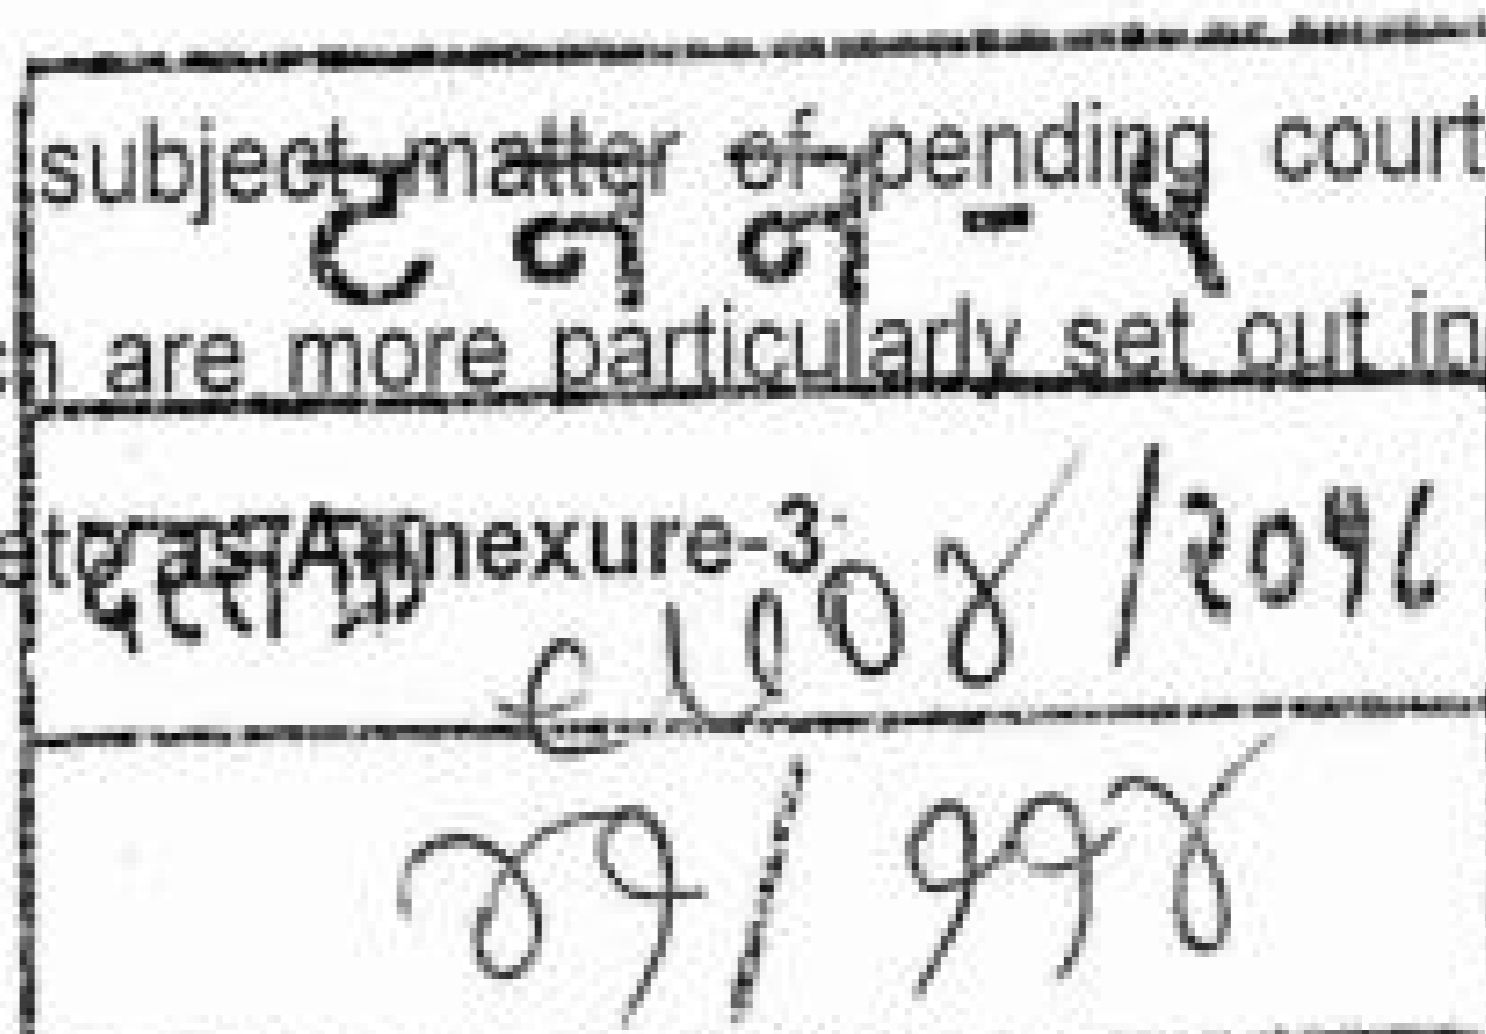 subject matter of pending court
ट न न - ५
are more particularly set out in
as Annexure-3
दस्त क्र. /२०१६
४१/११४